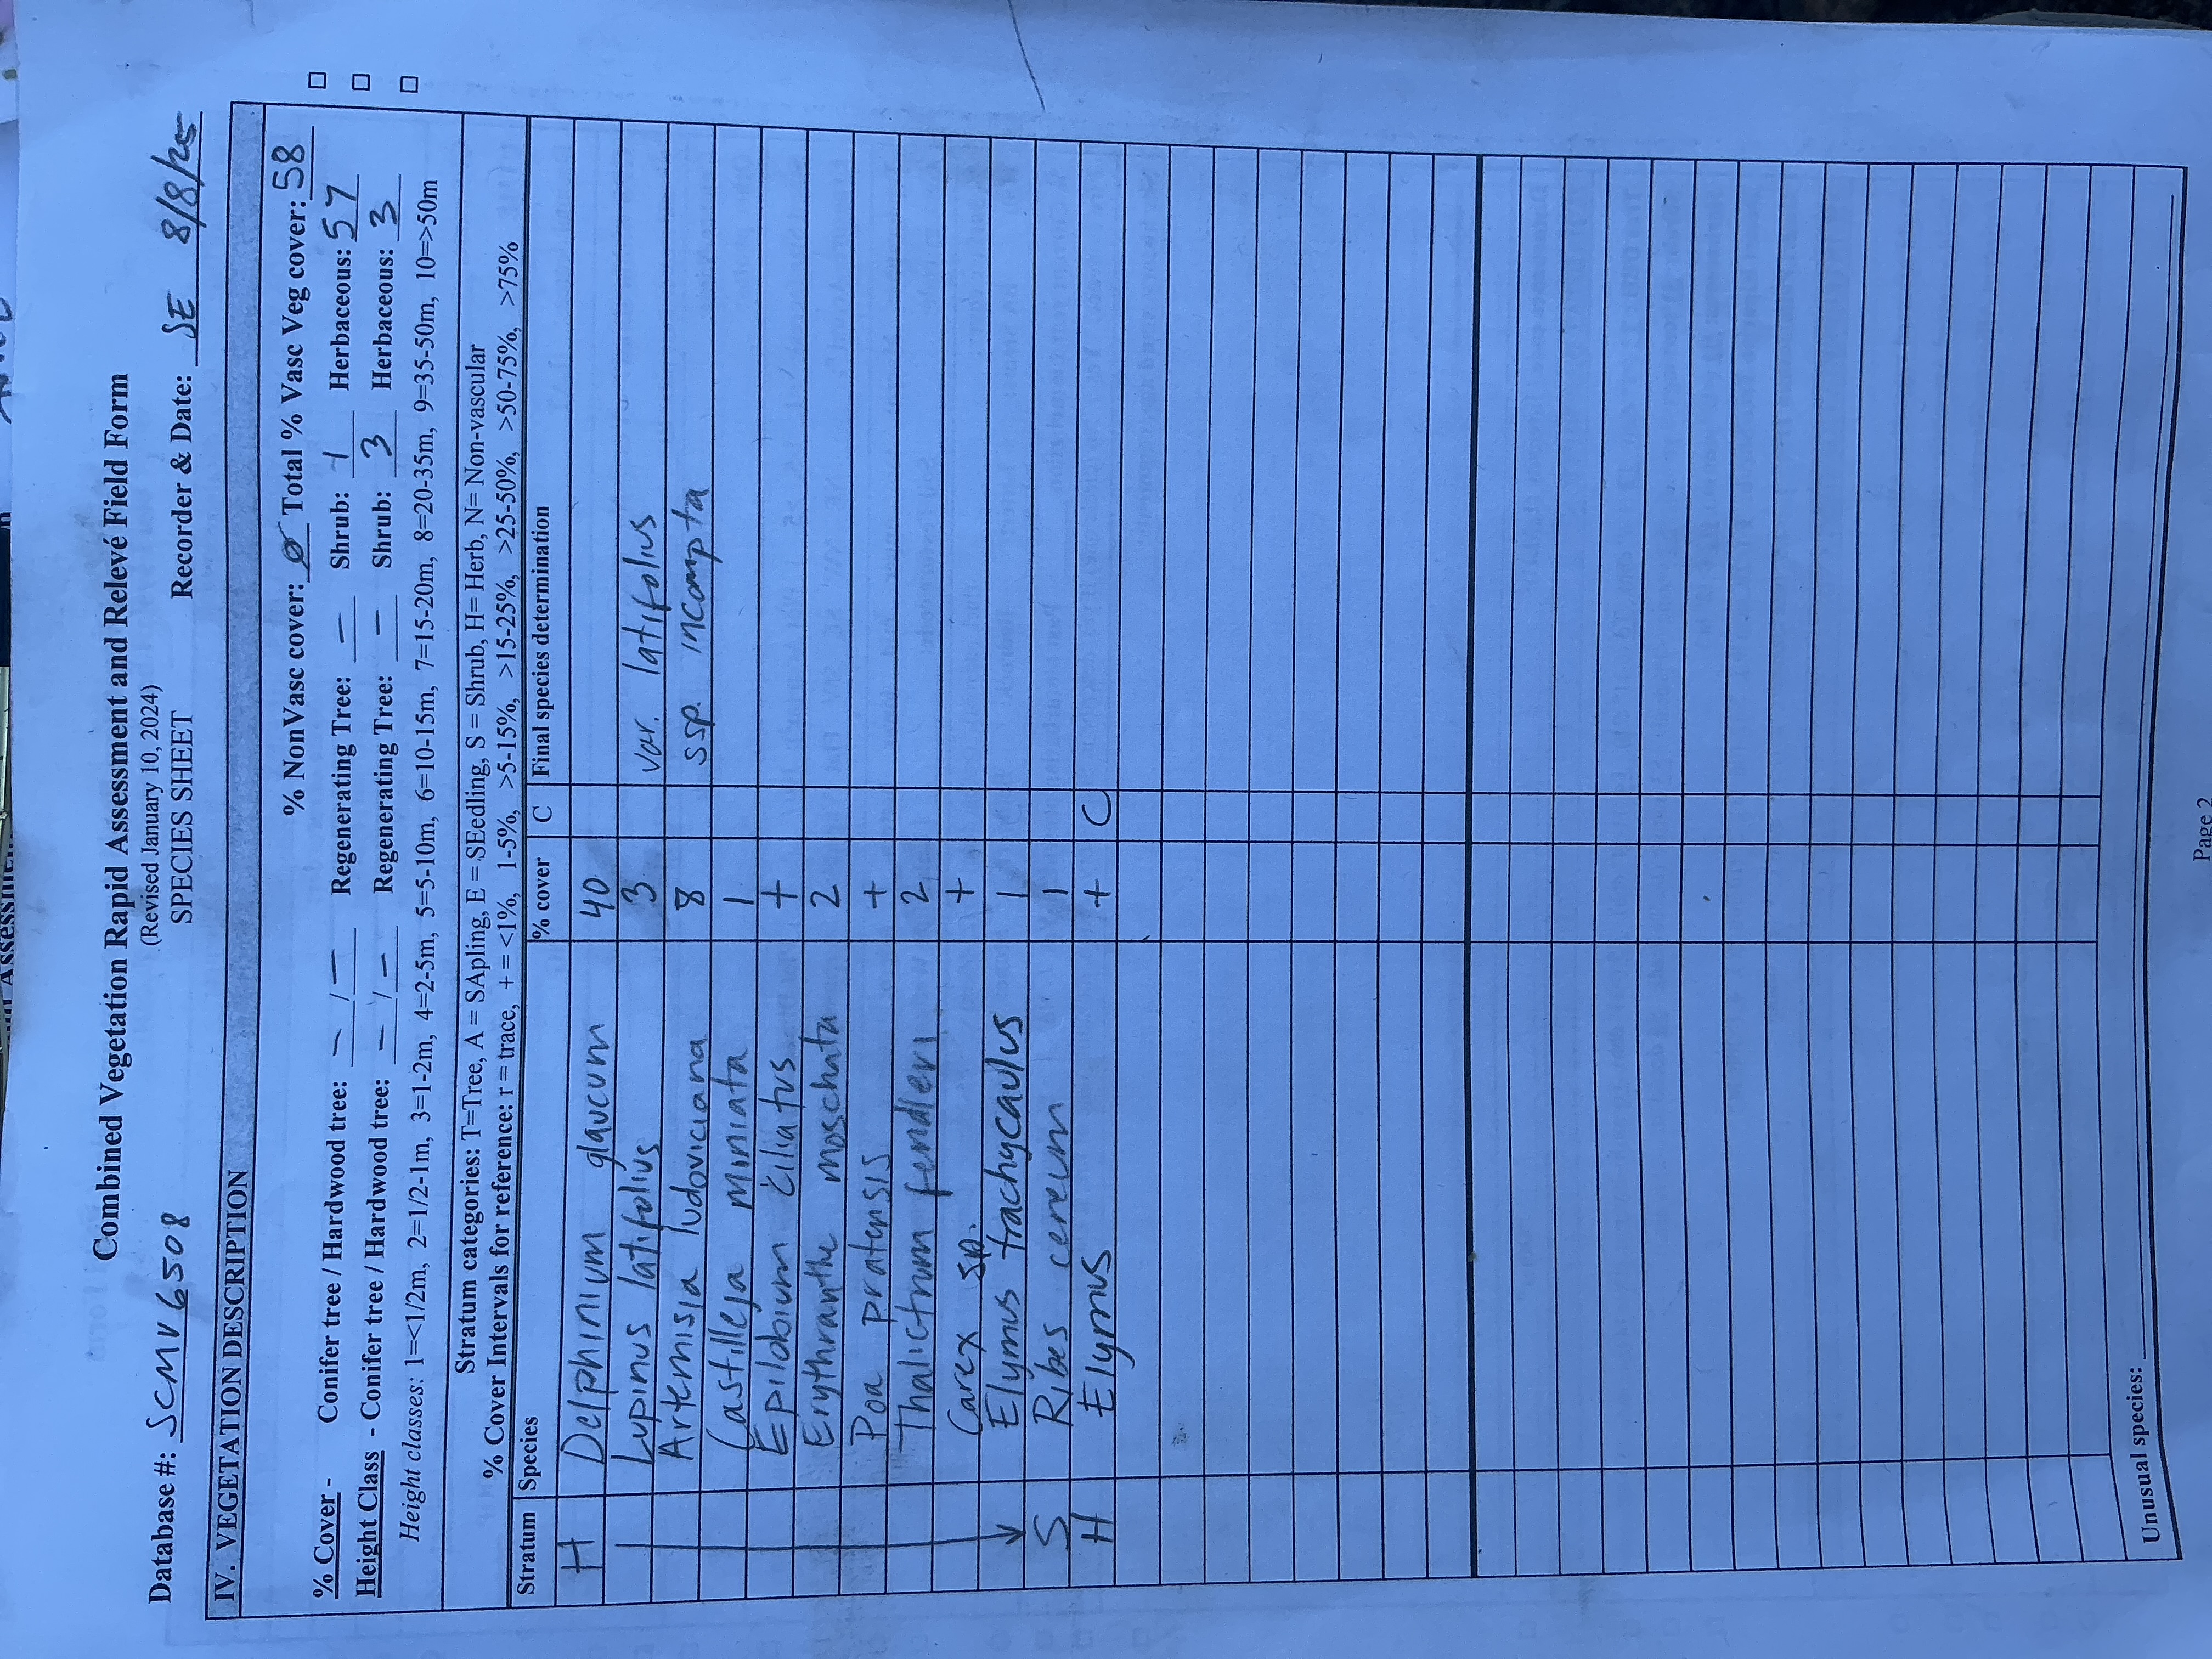 Combined Vegetation Rapid Assessment and Relevé Field Form
(Revised January 10, 2024)
SPECIES SHEET
Database #: SCMV6508 Recorder & Date: SE 8/8/25
IV. VEGETATION DESCRIPTION
% NonVasc cover: Ø Total % Vasc Veg cover: 58
% Cover - Conifer tree / Hardwood tree: – / – Regenerating Tree: – Shrub: 1 Herbaceous: 57 □
Height Class - Conifer tree / Hardwood tree: – / – Regenerating Tree: – Shrub: 3 Herbaceous: 3 □
Height classes: 1=<1/2m, 2=1/2-1m, 3=1-2m, 4=2-5m, 5=5-10m, 6=10-15m, 7=15-20m, 8=20-35m, 9=35-50m, 10=>50m □
Stratum categories: T=Tree, A = SApling, E = SEedling, S = Shrub, H= Herb, N= Non-vascular
% Cover Intervals for reference: r = trace, + = <1%, 1-5%, >5-15%, >15-25%, >25-50%, >50-75%, >75%
Stratum Species % cover C Final species determination
H Delphinium glaucum 40
Lupinus latifolius 3 var. latifolius
Artemisia ludoviciana 8 ssp. incompta
Castilleja miniata 1
Epilobium ciliatus +
Erythranthe moschata 2
Poa pratensis +
Thalictrum fendleri 2
Carex sp. +
Elymus trachycaulus 1
S Ribes cereum 1
H Elymus + C
Unusual species:
Page 2